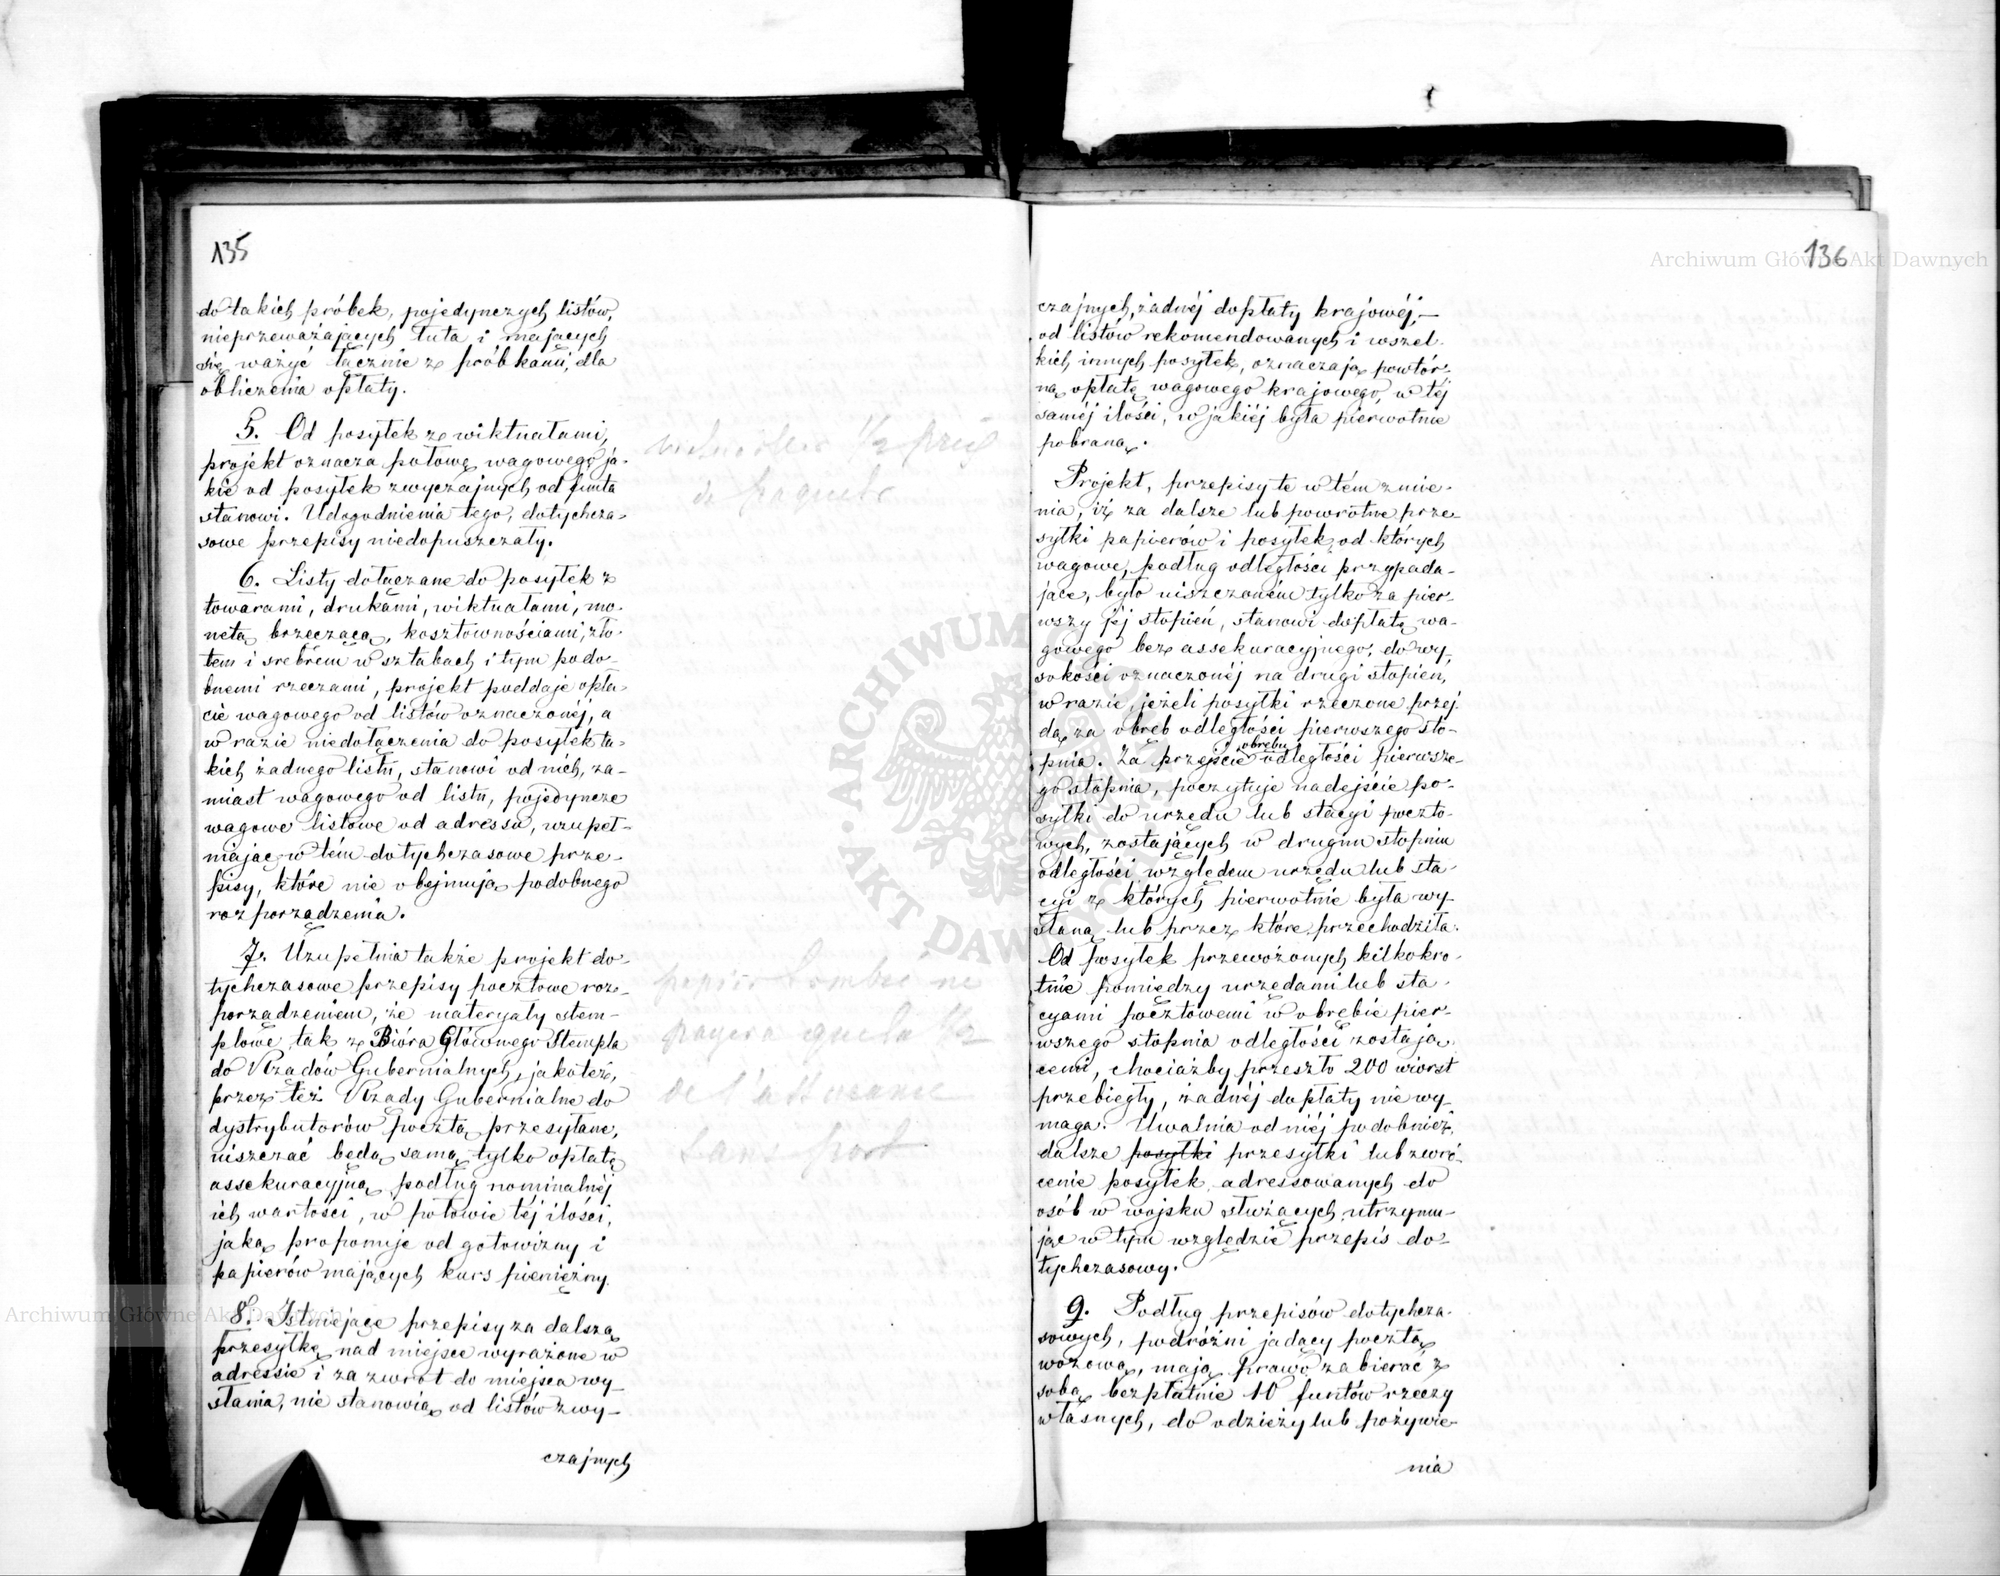 135
do takich próbek, pojedynczych listów,
nieprzeważających łuta i mających
się ważyć łącznie z próbkami, dla
obliczenia opłaty.
5. Od posyłek z wiktuałami,
projekt oznacza połowę wagowego ja-
kie od posyłek zwyczajnych od funta
stanowi. Udogodnienia tego, dotychcza-
sowe przepisy niedopuszczały.
6. Listy dołączane do posyłek z
towarami, drukami, wiktuałami, mo-
netą brzęczącą, kosztownościami, zło-
tem i srebrem w sztabach i tym podo-
bnemi rzeczami, projekt poddaje opła-
cie wagowego od listów oznaczonéj, a
w razie niedołączenia do posyłek ta-
kich żadnego listu, stanowi od nich, za-
miast wagowego od listu, pojedyncze
wagowe listowe od adressu, uzupeł-
niając w tém dotychczasowe prze-
pisy, które nie obejmują podobnego
rozporządzenia.
7. Uzupełnia także projekt do-
tychczasowe przepisy pocztowe roz-
porządzeniem, że materyały stem-
plowe tak z Bióra Głównego Stempla
do Rządów Gubernialnych, jakoteż,
przez też Rządy Gubernialne do
dystrybutorów pocztą przesyłane,
uiszczać będą samą tylko opłatę
assekuracyjną podług nominalnéj
ich wartości, w połowie téj ilości,
jaką proponuje od gotowizny i
papierów mających kurs pieniężny.
8. Istniejące przepisy za dalszą
przesyłkę nad miejsce wyrażone w
adressie i za zwrot do miejsca wy-
słania, nie stanowią od listów zwy-
czajnych
1/2 prix
de paquets
papier timbré ne
payera que la 1/2
de l'assurance
sans port
136
czajnych, żadnéj dopłaty krajowéj,—
od listów rekomendowanych i wszel-
kich innych posyłek, oznaczają powtór-
ną opłatę wagowego krajowego, w téj
saméj ilości, w jakiéj była pierwotnie
pobraną.
Projekt, przepisy te w tém zmie-
nia, iż za dalsze lub powrotne prze-
syłki papierów i posyłek, od których
wagowe, podług odległości przypada-
jące, było uiszczoném tylko za pier-
wszy jéj stopień, stanowi dopłatę wa-
gowego bez assekuracyjnego, do wy-
sokości oznaczonéj na drugi stopień,
w razie, jeżeli posyłki rzeczone przej-
dą za obręb odległości pierwszego sto-
pnia. Za przejście obrębu odległości pierwsze-
go stopnia, poczytuje nadejście po-
syłki do urzędu lub stacyi poczto-
wych, zostających w drugim stopniu
odległości względem urzędu lub sta-
cyi z których pierwotnie była wy-
słaną lub przez które przechodziła.
Od posyłek przewożonych kilkokro-
tnie pomiędzy urzędami lub sta-
cyami pocztowemi w obrębie pier-
wszego stopnia odległości zostają-
cemi, chociażby przeszło 200 wiorst
przebiegły, żadnéj dopłaty nie wy-
maga. Uwalnia od niéj podobnież,
dalsze posyłki przesyłki lub zwró-
cenie posyłek adressowanych do
osób w wojsku służących, utrzymu-
jąc w tym względzie przepis do-
tychczasowy.
9. Podług przepisów dotychcza-
sowych, podróżni jadący pocztą
wozową, mają prawo zabierać z
sobą bezpłatnie 10 funtów rzeczy
własnych, do odzieży lub pożywie-
nia
Archiwum Główne Akt Dawnych
Archiwum Główne Akt Dawnych